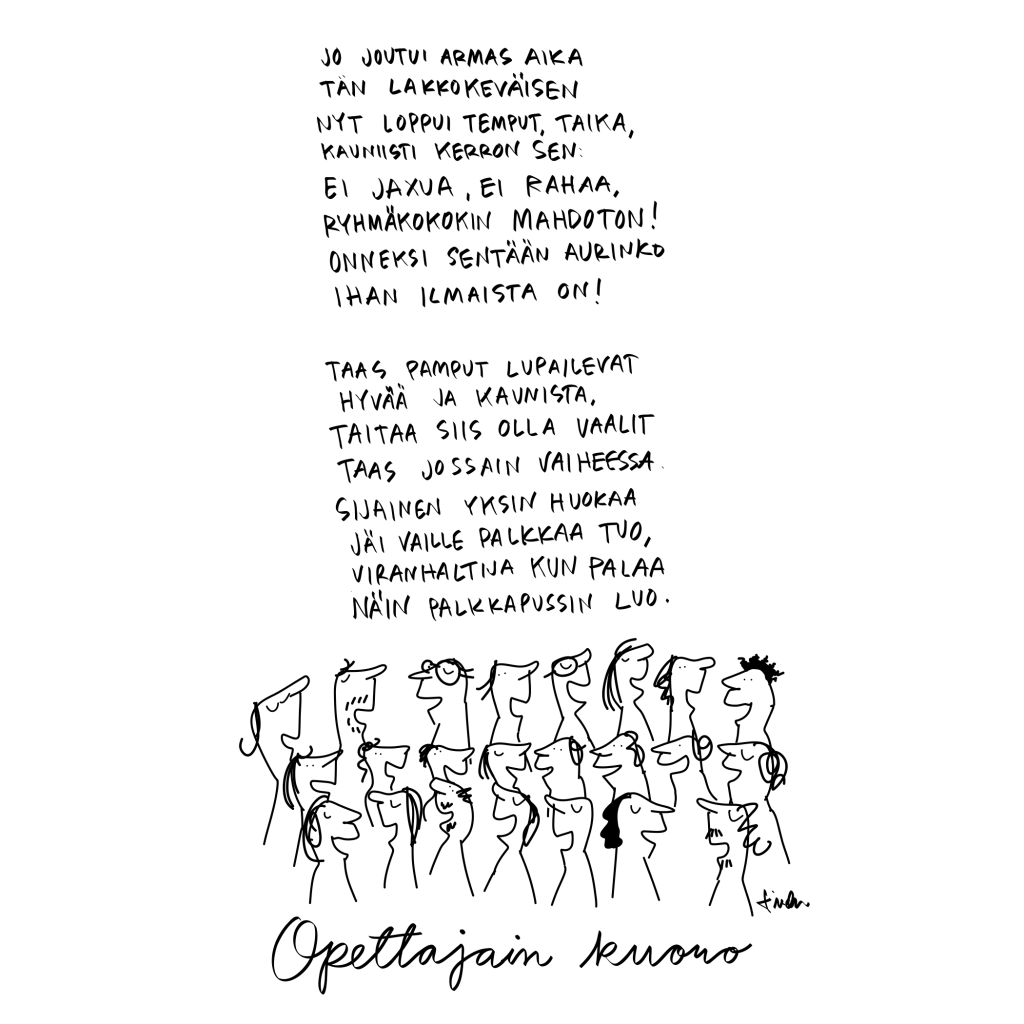 JO JOUTUI ARMAS AIKA
TÄN LAKKOKEVÄISEN
NYT LOPPUI TEMPUT, TAIKA,
KAUNIISTI KERRON SEN:
EI JAXUA, EI RAHAA,
RYHMÄKOKOKIN MAHDOTON!
ONNEKSI SENTÄÄN AURINKO
IHAN ILMAISTA ON!
TAAS PAMPUT LUPAILEVAT
HYVÄÄ JA KAUNISTA,
TAITAA SIIS OLLA VAALIT
TAAS JOSSAIN VAIHEESSA.
SIJAINEN YKSIN HUOKAA
JÄI VAILLE PALKKAA TUO,
VIRANHALTIJA KUN PALAA
NÄIN PALKKAPUSSIN LUO.
Opettajain kuoro